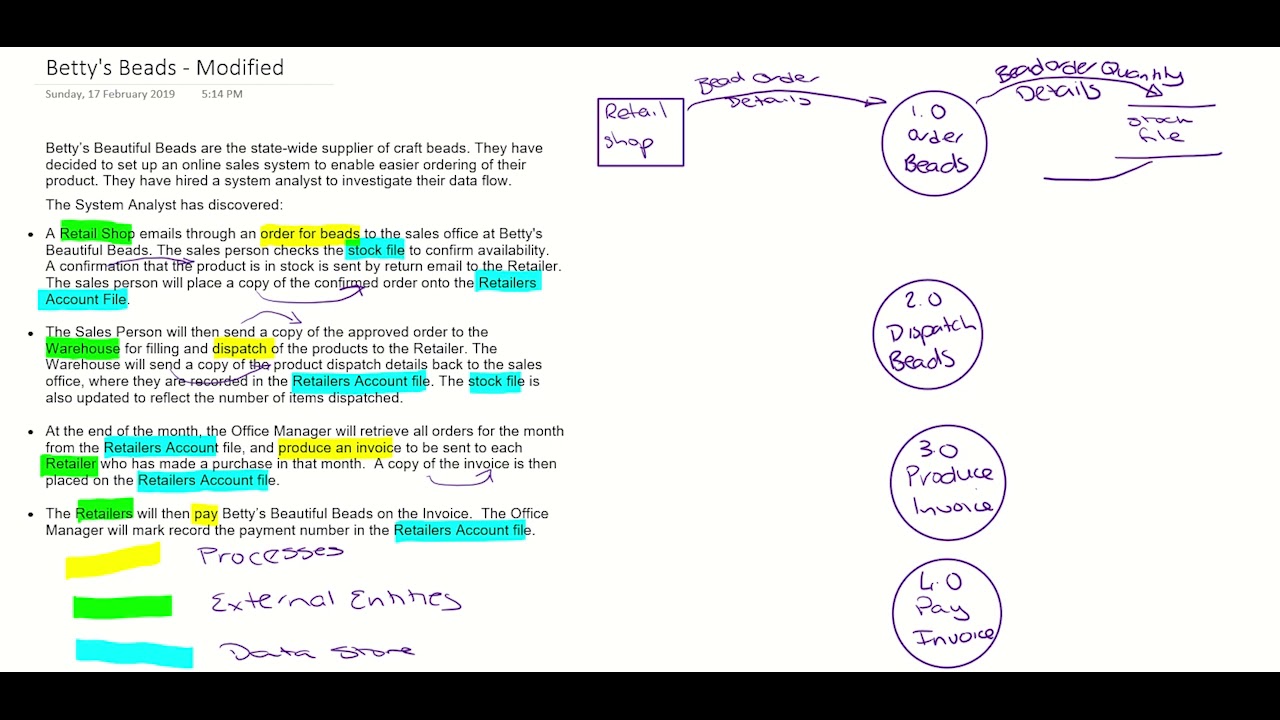 Betty's Beads - Modified
Sunday, 17 February 2019 5:14 PM
Betty's Beautiful Beads are the state-wide supplier of craft beads. They have
decided to set up an online sales system to enable easier ordering of their
product. They have hired a system analyst to investigate their data flow.
The System Analyst has discovered:
• A Retail Shop emails through an order for beads to the sales office at Betty's
Beautiful Beads. The sales person checks the stock file to confirm availability.
A confirmation that the product is in stock is sent by return email to the Retailer.
The sales person will place a copy of the confirmed order onto the Retailers
Account File.
• The Sales Person will then send a copy of the approved order to the
Warehouse for filling and dispatch of the products to the Retailer. The
Warehouse will send a copy of the product dispatch details back to the sales
office, where they are recorded in the Retailers Account file. The stock file is
also updated to reflect the number of items dispatched.
• At the end of the month, the Office Manager will retrieve all orders for the month
from the Retailers Account file, and produce an invoice to be sent to each
Retailer who has made a purchase in that month. A copy of the invoice is then
placed on the Retailers Account file.
• The Retailers will then pay Betty's Beautiful Beads on the Invoice. The Office
Manager will mark record the payment number in the Retailers Account file.
Processes
External Entities
Data Store
Retail
shop
Bead Order
Details
1.0
Order
Beads
Bead Order Quantity
Details
Stock
file
2.0
Dispatch
Beads
3.0
Produce
Invoice
4.0
Pay
Invoice